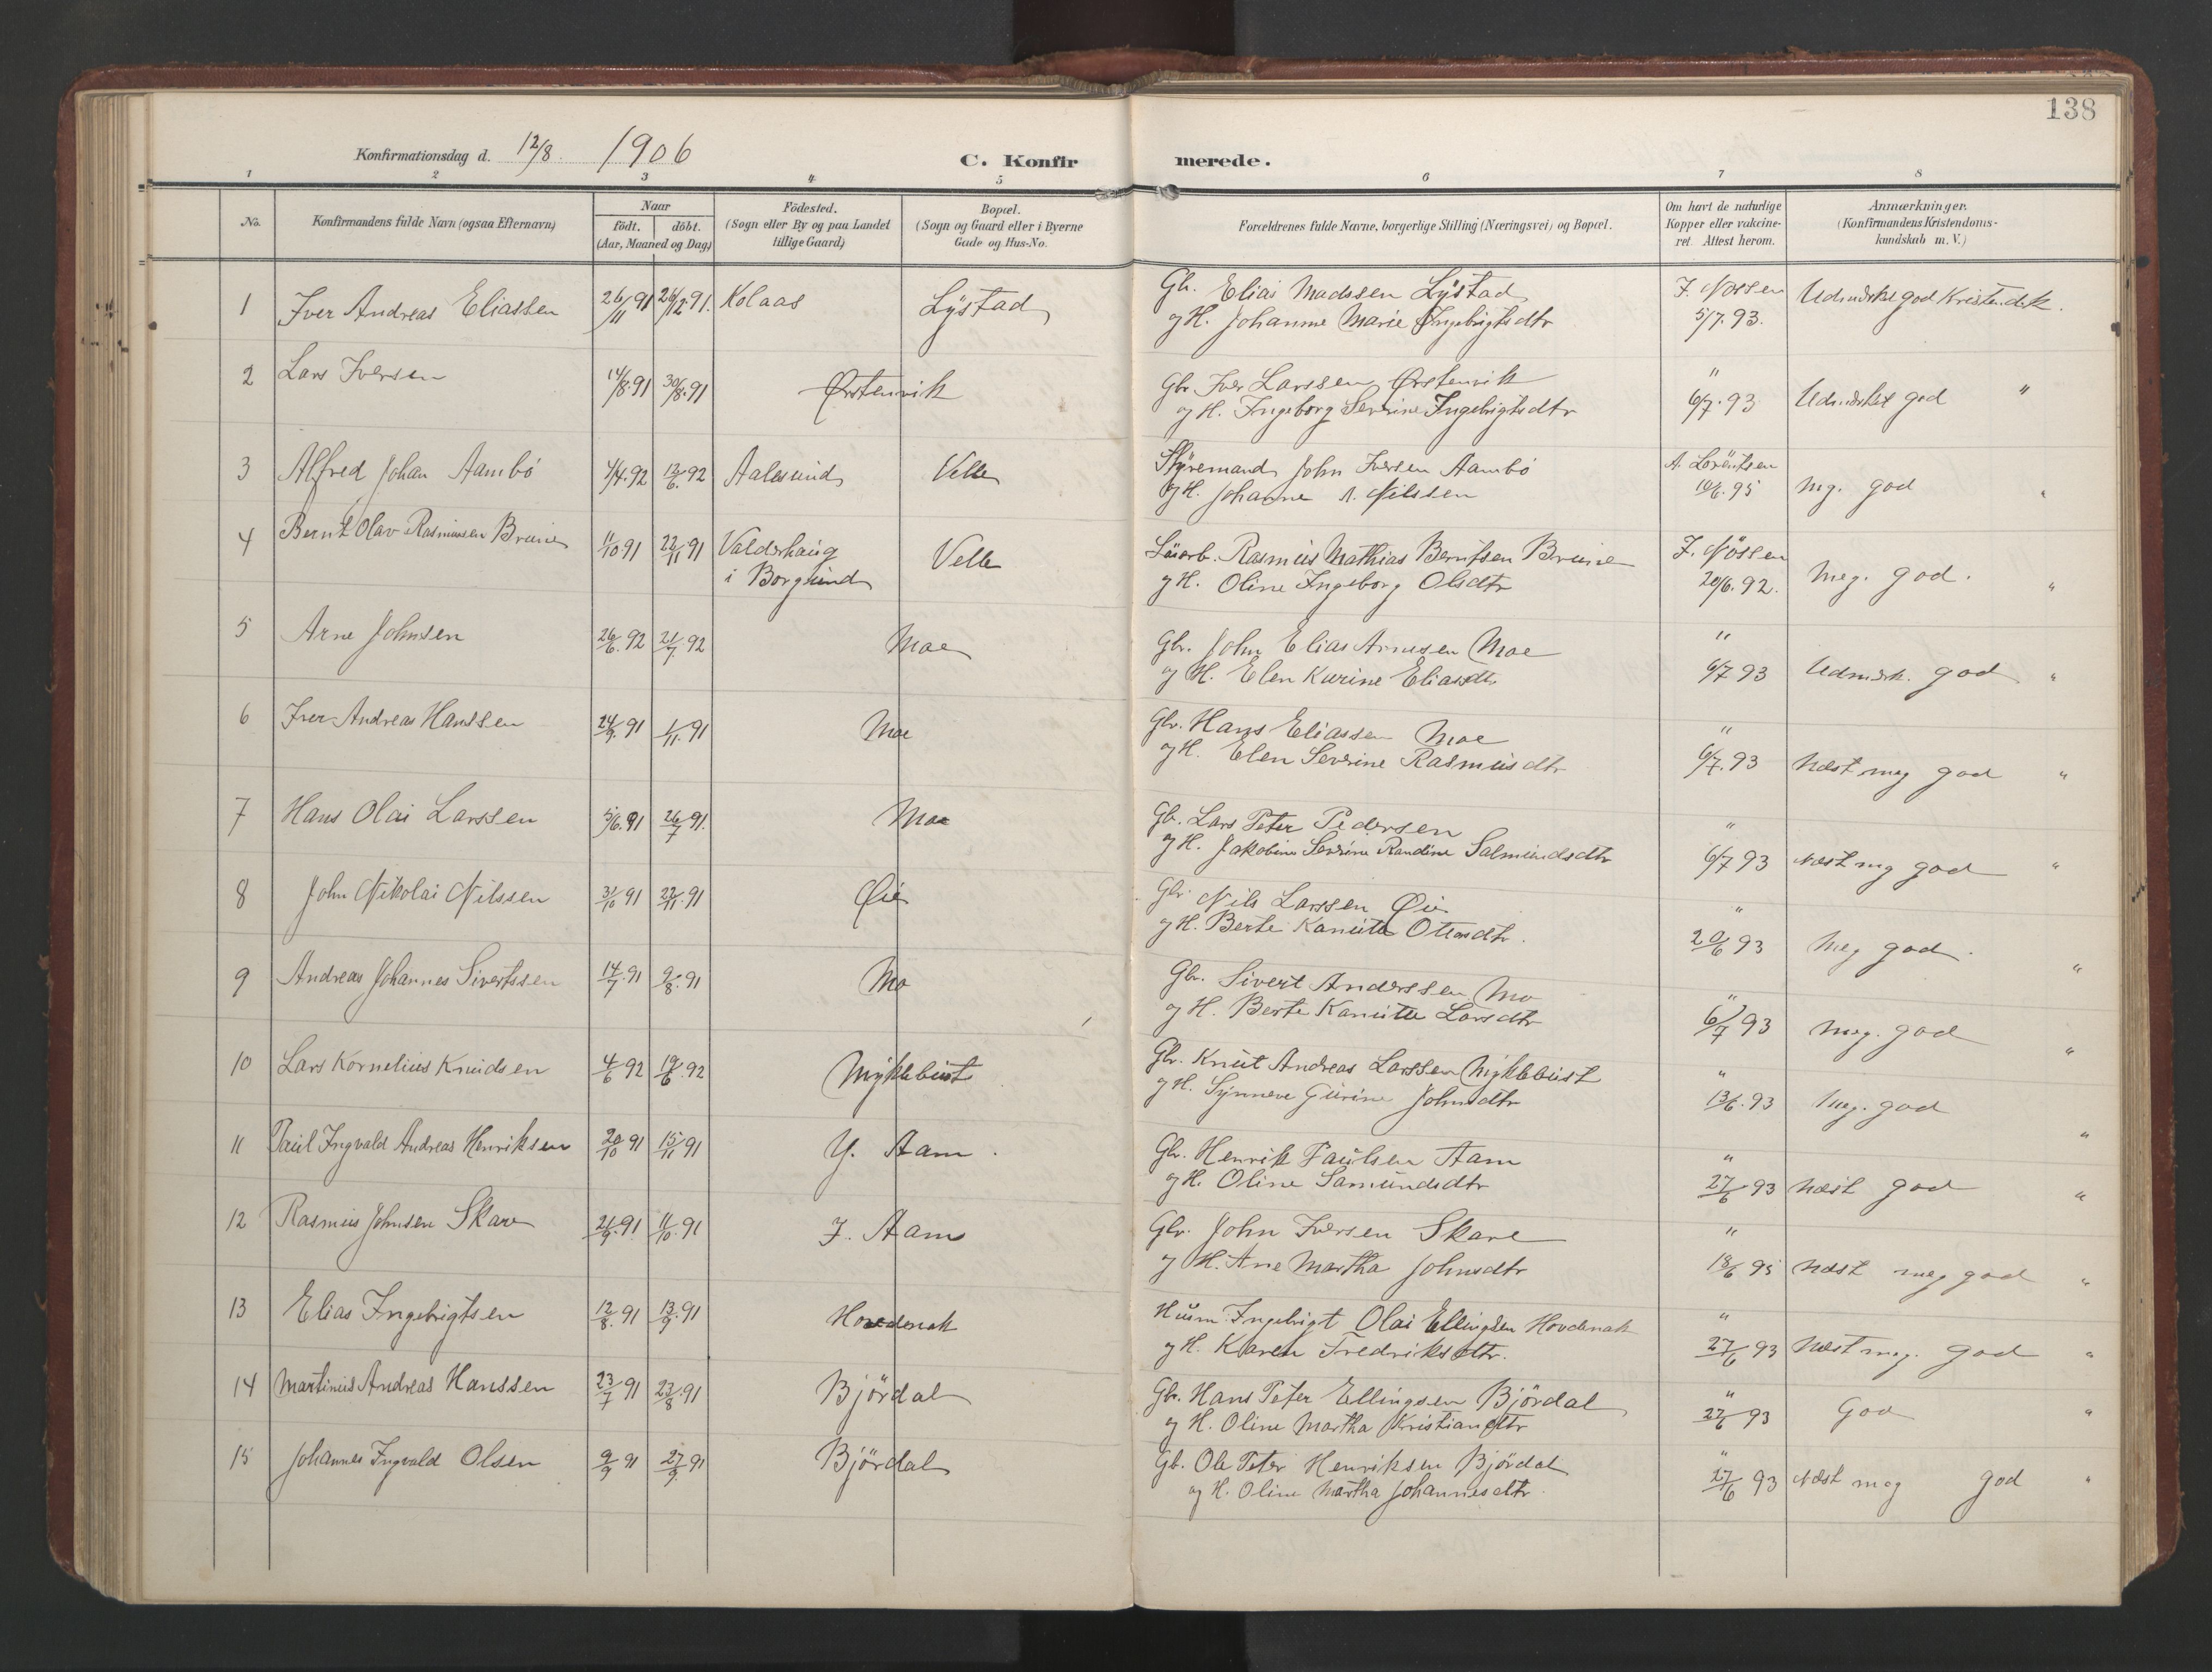 138
Konfirmationsdag d. 12/8 1906 C. Konfir merede.
1 2 3 4 5 6 7 8
No. Konfirmandens fulde Navn (ogsaa Efternavn) Naar födt. döbt. (Aar, Maaned og Dag) Födested. (Sogn eller By og paa Landet tillige Gaard) Bopæl. (Sogn og Gaard eller i Byerne Gade og Hus-No. Forældrenes fulde Navne, borgerlige Stilling (Næringsvei) og Bopæl. Om havt de naturlige Kopper eller vakcineret. Attest herom. Anmærkninger. (Konfirmandens Kristendomskundskab m. V.)
1 Iver Andreas Eliassen 26/11 91 26/12 91. Kolaas Lystad Gbr. Elias Madssen Lystad
og H. Johanne Marie Ingebrigtsdtr J. Nossen 5/7. 93. Udmærket god Kristendsk.
2 Lars Iversen 14/8. 91 30/8. 91 Ørstenvik Gbr. Iver Larssen Ørstenvik
og H. Ingeborg Severine Ingebrigtsdtr " 6/7. 93 Udmærket god "
3 Alfred Johan Aambö 4/4. 92 12/6. 92 Aalesund Velle Styremand John Iversen Aambö
og H. Johanne A. Nilssen A. Lorentsen 10/6. 95 mg. god "
4 Bernt Olav Rasmussen Brune 11/10 91 22/11 91 Valderhaug
i Borgund Velle Rasmus Mathias Berntsen Brune
og H. Oline Ingeborg Olsdtr J. Nössen 20/6. 92. Meg. god. "
5 Arne Johnsen 26/6. 92 21/7. 92 Moe Gbr. John Elias Arnesen Moe
og H. Elen Kurine Eliasdtr " 6/7 93 Udmærk. god "
6 Iver Andreas Hanssen 24/9. 91 1/11. 91 Moe Gbr. Hans Eliassen Moe
og H. Elen Severine Rasmusdtr " 6/7. 93 Næst meg god "
7 Hans Olai Larssen 5/6. 91 26/7 91. Moe Gbr. Lars Peter Pedersen
og H. Jakobine Severine Randine Salmundsdtr " 6/7 93 Næst mg god "
8 John Nikolai Nilssen 31/10 91 22/11. 91 Øie Gbr Nils Larssen Øie
og H. Berte Kanutte dtr. " 20/6 93 Meg god. "
9 Andreas Johannes Sivertssen 14/7. 91 9/8. 91 Mo Gbr. Sivert Anderssen Mo
og H. Berte Kanutte Larsdtr " 6/7 93 Meg. god "
10 Lars Kornelius Knudsen 4/6 92 19/6. 92 Myklebust Gbr. Knut Andreas Larssen Myklebust
og H. Synneve Gurine Johnsdtr " 13/6. 93 Meg. god "
11 Paul Ingvald Andreas Henriksen 20/10 91 15/11 91 Y. Aam. Gbr. Henrik Paulsen Aam
og H. Oline Samundsdtr " 27/6 93 Næst god "
12 Rasmus Johnsen Skare 21/9. 91 11/10. 91 I. Aam Gbr. John Iversen Skare
og H. Ane Martha Johnsdtr " 18/6 95 Næst meg god "
13 Elias Ingebrigtsen 12/8. 91 13/9. 91 Hovdenak Husm. Ingebrigt Olai Ellingsen Hovdenak
og H. Karen Fredriksdtr. " 27/6 93 Næst meg. god "
14 Martinus Andreas Hanssen 23/7 91 23/8. 91 Björdal Gbr. Hans Peter Ellingsen Björdal
og H. Oline Martha Kristiansdtr " 27/6 93 God "
15 Johannes Ingvald Olsen 9/9 91 27/9. 91 Björdal Gb. Ole Peter Henriksen Björdal
og H. Oline Martha Johannesdtr. " 27/6 93 Næst meg god "